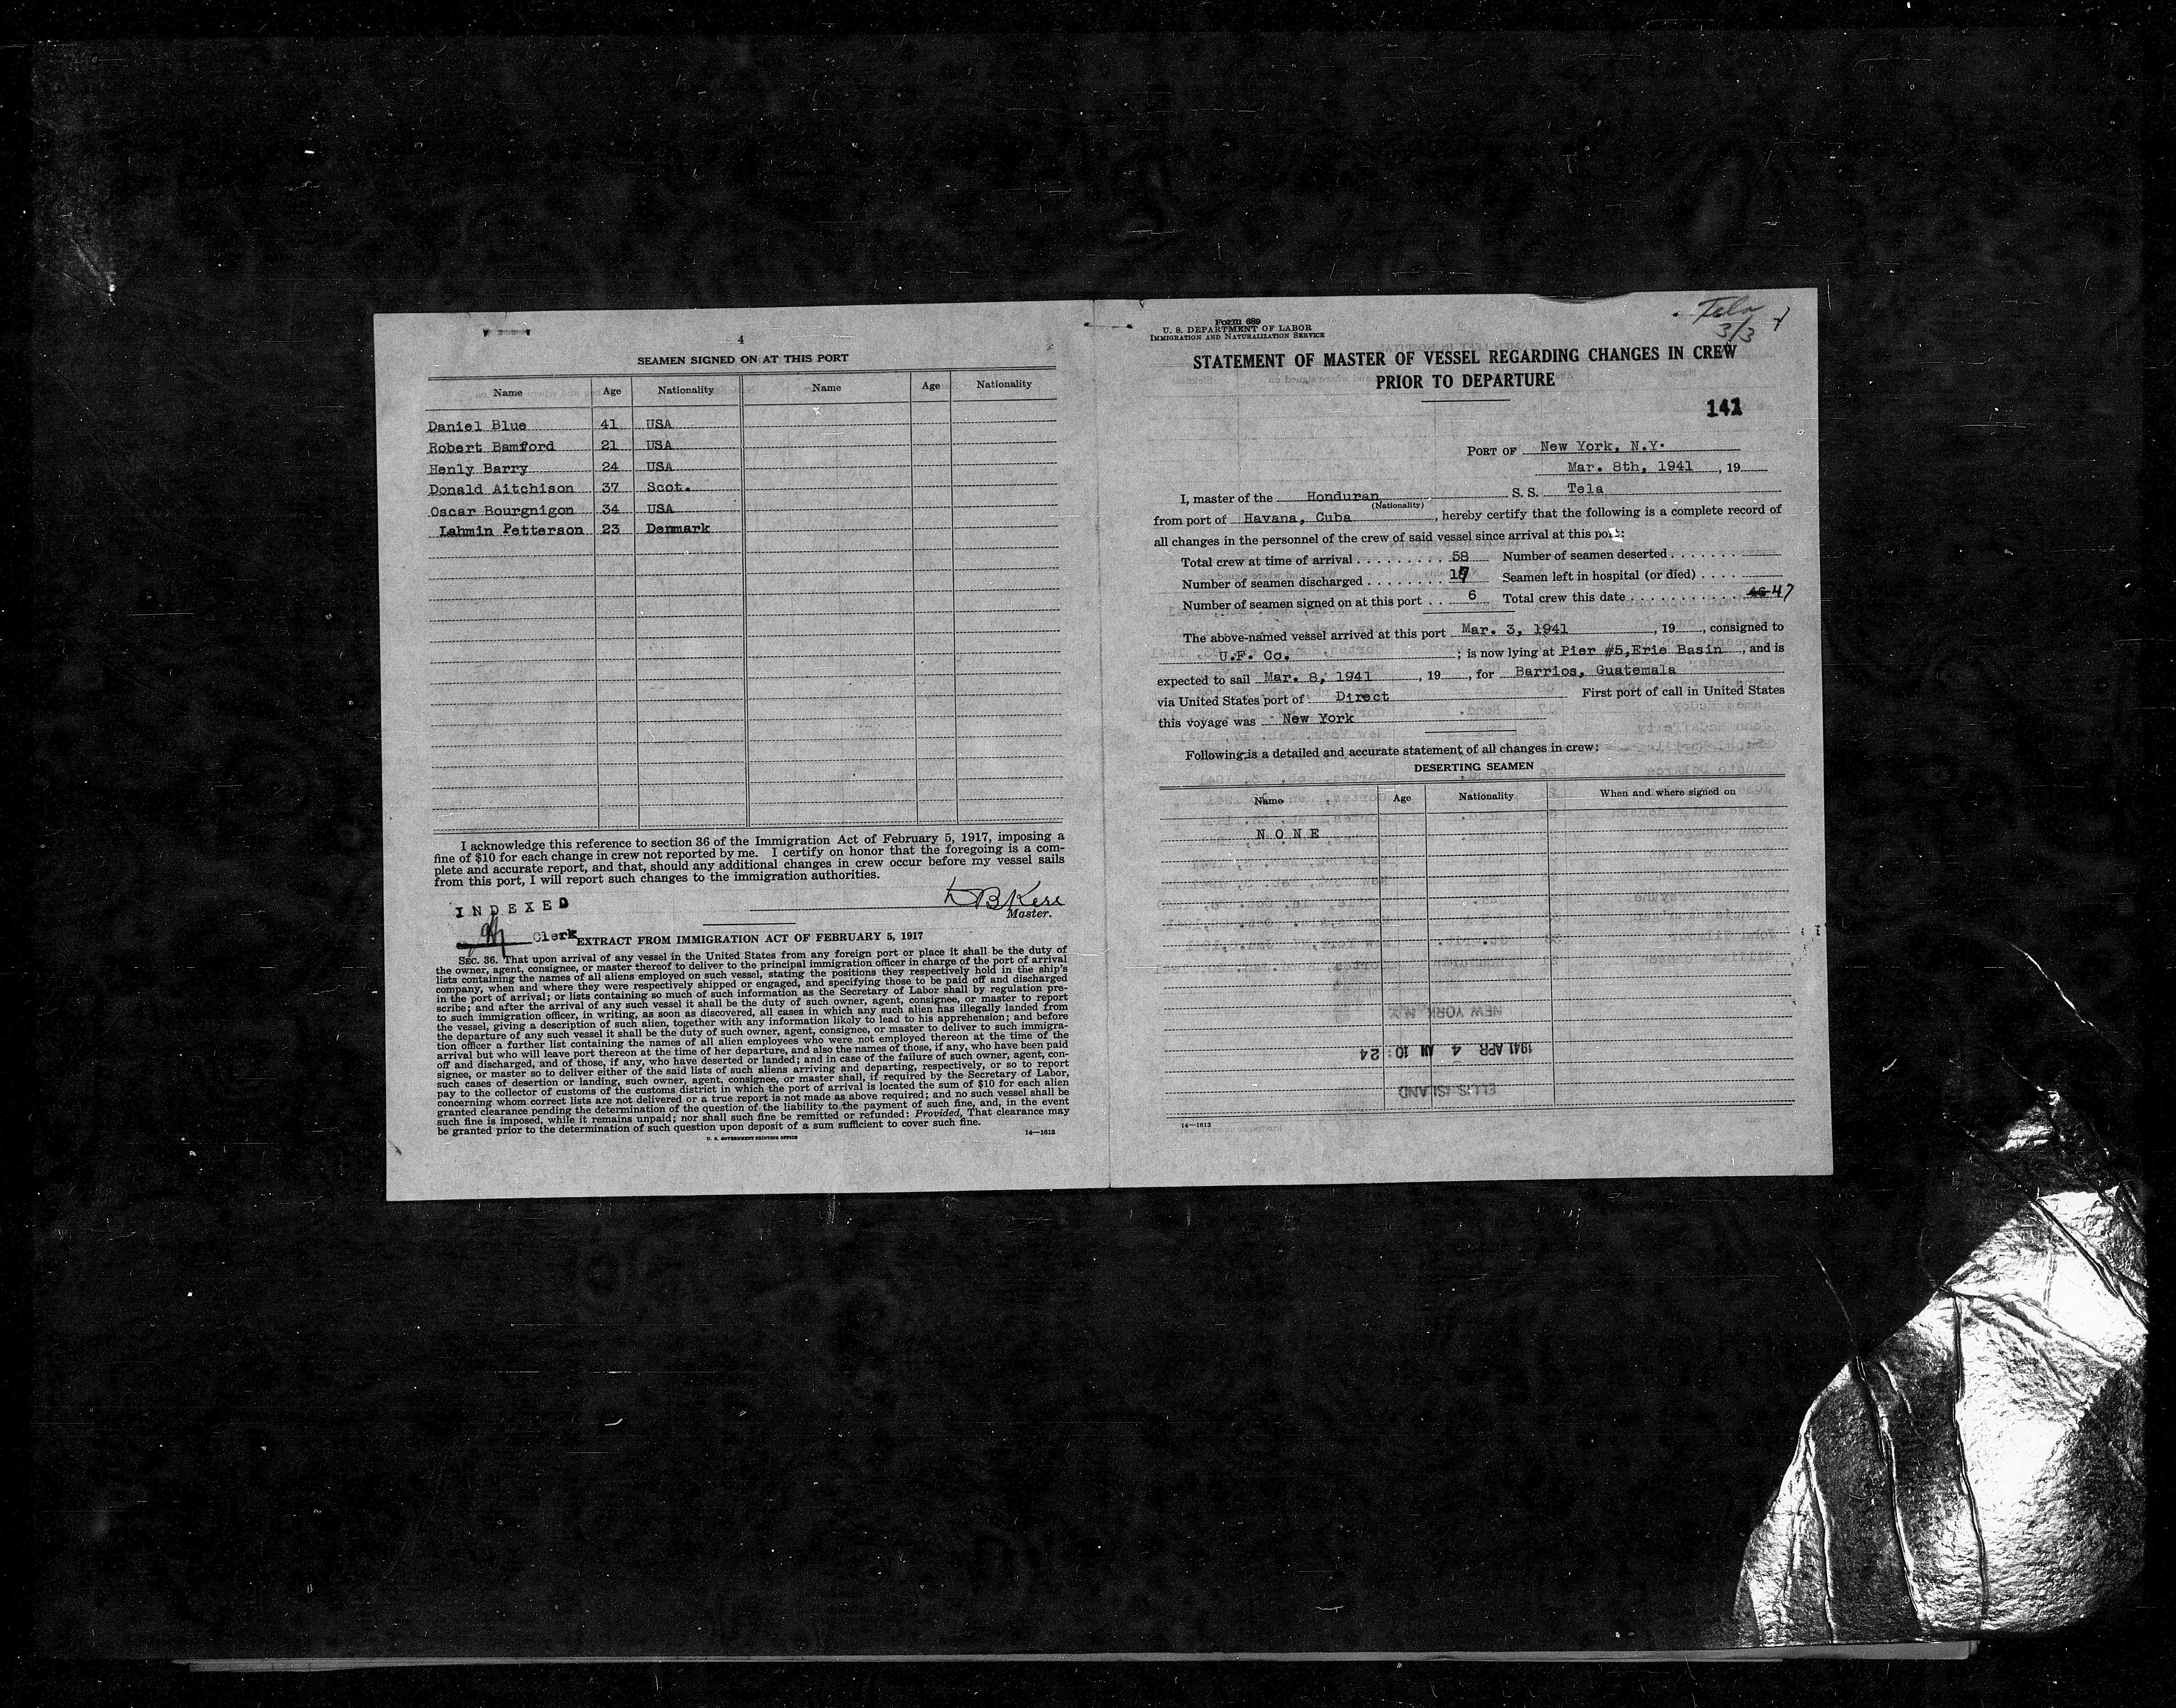 4
SEAMEN SIGNED ON AT THIS PORT
Name Age Nationality Name Age Nationality
Daniel Blue 41 USA
Robert Bamford 21 USA
Henly Barry 24 USA
Donald Aitchison 37 Scot.
Oscar Bourgnigon 34 USA
Lahmin Petterson 23 Denmark
I acknowledge this reference to section 36 of the Immigration Act of February 5, 1917, imposing a
fine of $10 for each change in crew not reported by me. I certify on honor that the foregoing is a com-
plete and accurate report, and that, should any additional changes in crew occur before my vessel sails
from this port, I will report such changes to the immigration authorities.
Master.
INDEXED
Clerk
EXTRACT FROM IMMIGRATION ACT OF FEBRUARY 5, 1917
SEC. 36. That upon arrival of any vessel in the United States from any foreign port or place it shall be the duty of
the owner, agent, consignee, or master thereof to deliver to the principal immigration officer in charge of the port of arrival
lists containing the names of all aliens employed on such vessel, stating the positions they respectively hold in the ship's
company, when and where they were respectively shipped or engaged, and specifying those to be paid off and discharged
in the port of arrival; or lists containing so much of such information as the Secretary of Labor shall by regulation pre-
scribe; and after the arrival of any such vessel it shall be the duty of such owner, agent, consignee, or master to report
to such immigration officer, in writing, as soon as discovered, all cases in which any such alien has illegally landed from
the vessel, giving a description of such alien, together with any information likely to lead to his apprehension; and before
the departure of any such vessel it shall be the duty of such owner, agent, consignee, or master to deliver to such immigra-
tion officer a further list containing the names of all alien employees who were not employed thereon at the time of the
arrival but who will leave port thereon at the time of her departure, and also the names of those, if any, who have been paid
off and discharged, and of those, if any, who have deserted or landed; and in case of the failure of such owner, agent, con-
signee, or master so to deliver either of the said lists of such aliens arriving and departing, respectively, or so to report
such cases of desertion or landing, such owner, agent, consignee, or master shall, if required by the Secretary of Labor,
pay to the collector of customs of the customs district in which the port of arrival is located the sum of $10 for each alien
concerning whom correct lists are not delivered or a true report is not made as above required; and no such vessel shall be
granted clearance pending the determination of the question of the liability to the payment of such fine, and, in the event
such fine is imposed, while it remains unpaid; nor shall such fine be remitted or refunded: Provided, That clearance may
be granted prior to the determination of such question upon deposit of a sum sufficient to cover such fine.
U. S. GOVERNMENT PRINTING OFFICE 14—1613
Tela
3/3
Form 689
U. S. DEPARTMENT OF LABOR
IMMIGRATION AND NATURALIZATION SERVICE
STATEMENT OF MASTER OF VESSEL REGARDING CHANGES IN CREW
PRIOR TO DEPARTURE
141
PORT OF New York, N.Y.
Mar. 8th, 1941 , 19
I, master of the Honduran S. S. Tela
(Nationality)
from port of Havana, Cuba , hereby certify that the following is a complete record of
all changes in the personnel of the crew of said vessel since arrival at this port:
Total crew at time of arrival 58 Number of seamen deserted
Number of seamen discharged 17 Seamen left in hospital (or died)
Number of seamen signed on at this port 6 Total crew this date 46 47
The above-named vessel arrived at this port Mar. 3, 1941 , 19 , consigned to
U.F. Co. ; is now lying at Pier #5, Erie Basin , and is
expected to sail Mar. 8, 1941 , 19 , for Barrios, Guatemala
via United States port of Direct First port of call in United States
this voyage was New York
Following is a detailed and accurate statement of all changes in crew:
DESERTING SEAMEN
Name Age Nationality When and where signed on
NONE
NEW YORK N.Y.
1941 APR 4 AM 10:24
ELLIS ISLAND
14—1613